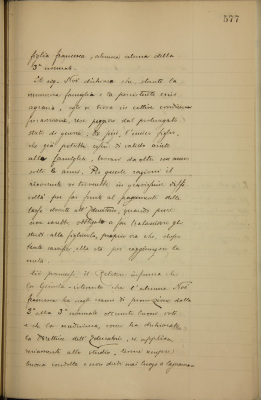 577
figlia Francesca, alunna interna della
3ª normale.
Il sig. Noè dichiara che, stante la
numerosa famiglia e la persistente crisi
agraria, egli si trova in cattive condizioni
finanziarie, rese peggiori dal prolungato
stato di guerra; che di più, l'unico figlio,
che già potrebbe essergli di valido aiuto
alla famiglia, trovasi da oltre un anno
sotto le armi. Per queste ragioni il
ricorrente si troverebbe in gravissime diffi
coltà per far fronte al pagamento della
tassa dovuta all'Educatorio, quando pure
non venisse obbligato a far tralasciare gli
studi alla figliuola, proprio ora che, dopo
tante sacrifici ella sta per raggiungere la
meta.
Ciò premesso il Relatore informa che
la Giunta, ritenuto che l'alunna Noè
Francesca ha negli esami di promozione dalla
2ª alla 3ª normale ottenuti buoni voti
e che la medesima, come ha dichiarato
la Direttrice dell'Educatorio, si applica
seriamente allo studio, tiene sempre
buona condotta e non diede mai luogo a lagnanze